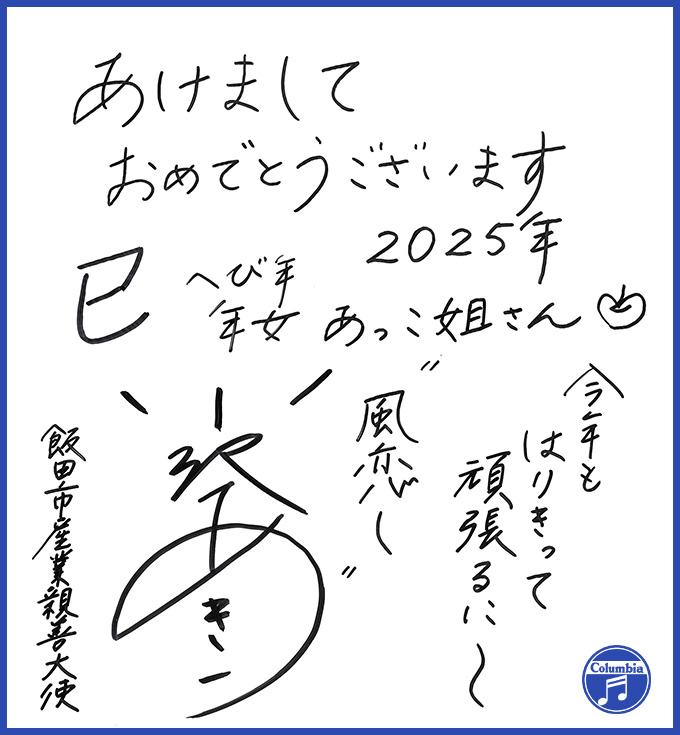 あけまして
おめでとうございます
2025年
巳
へび年
年女 あっこ姐さん
今年も
はりきって
頑張るに〜
"風恋し"
飯田市産業親善大使
Columbia